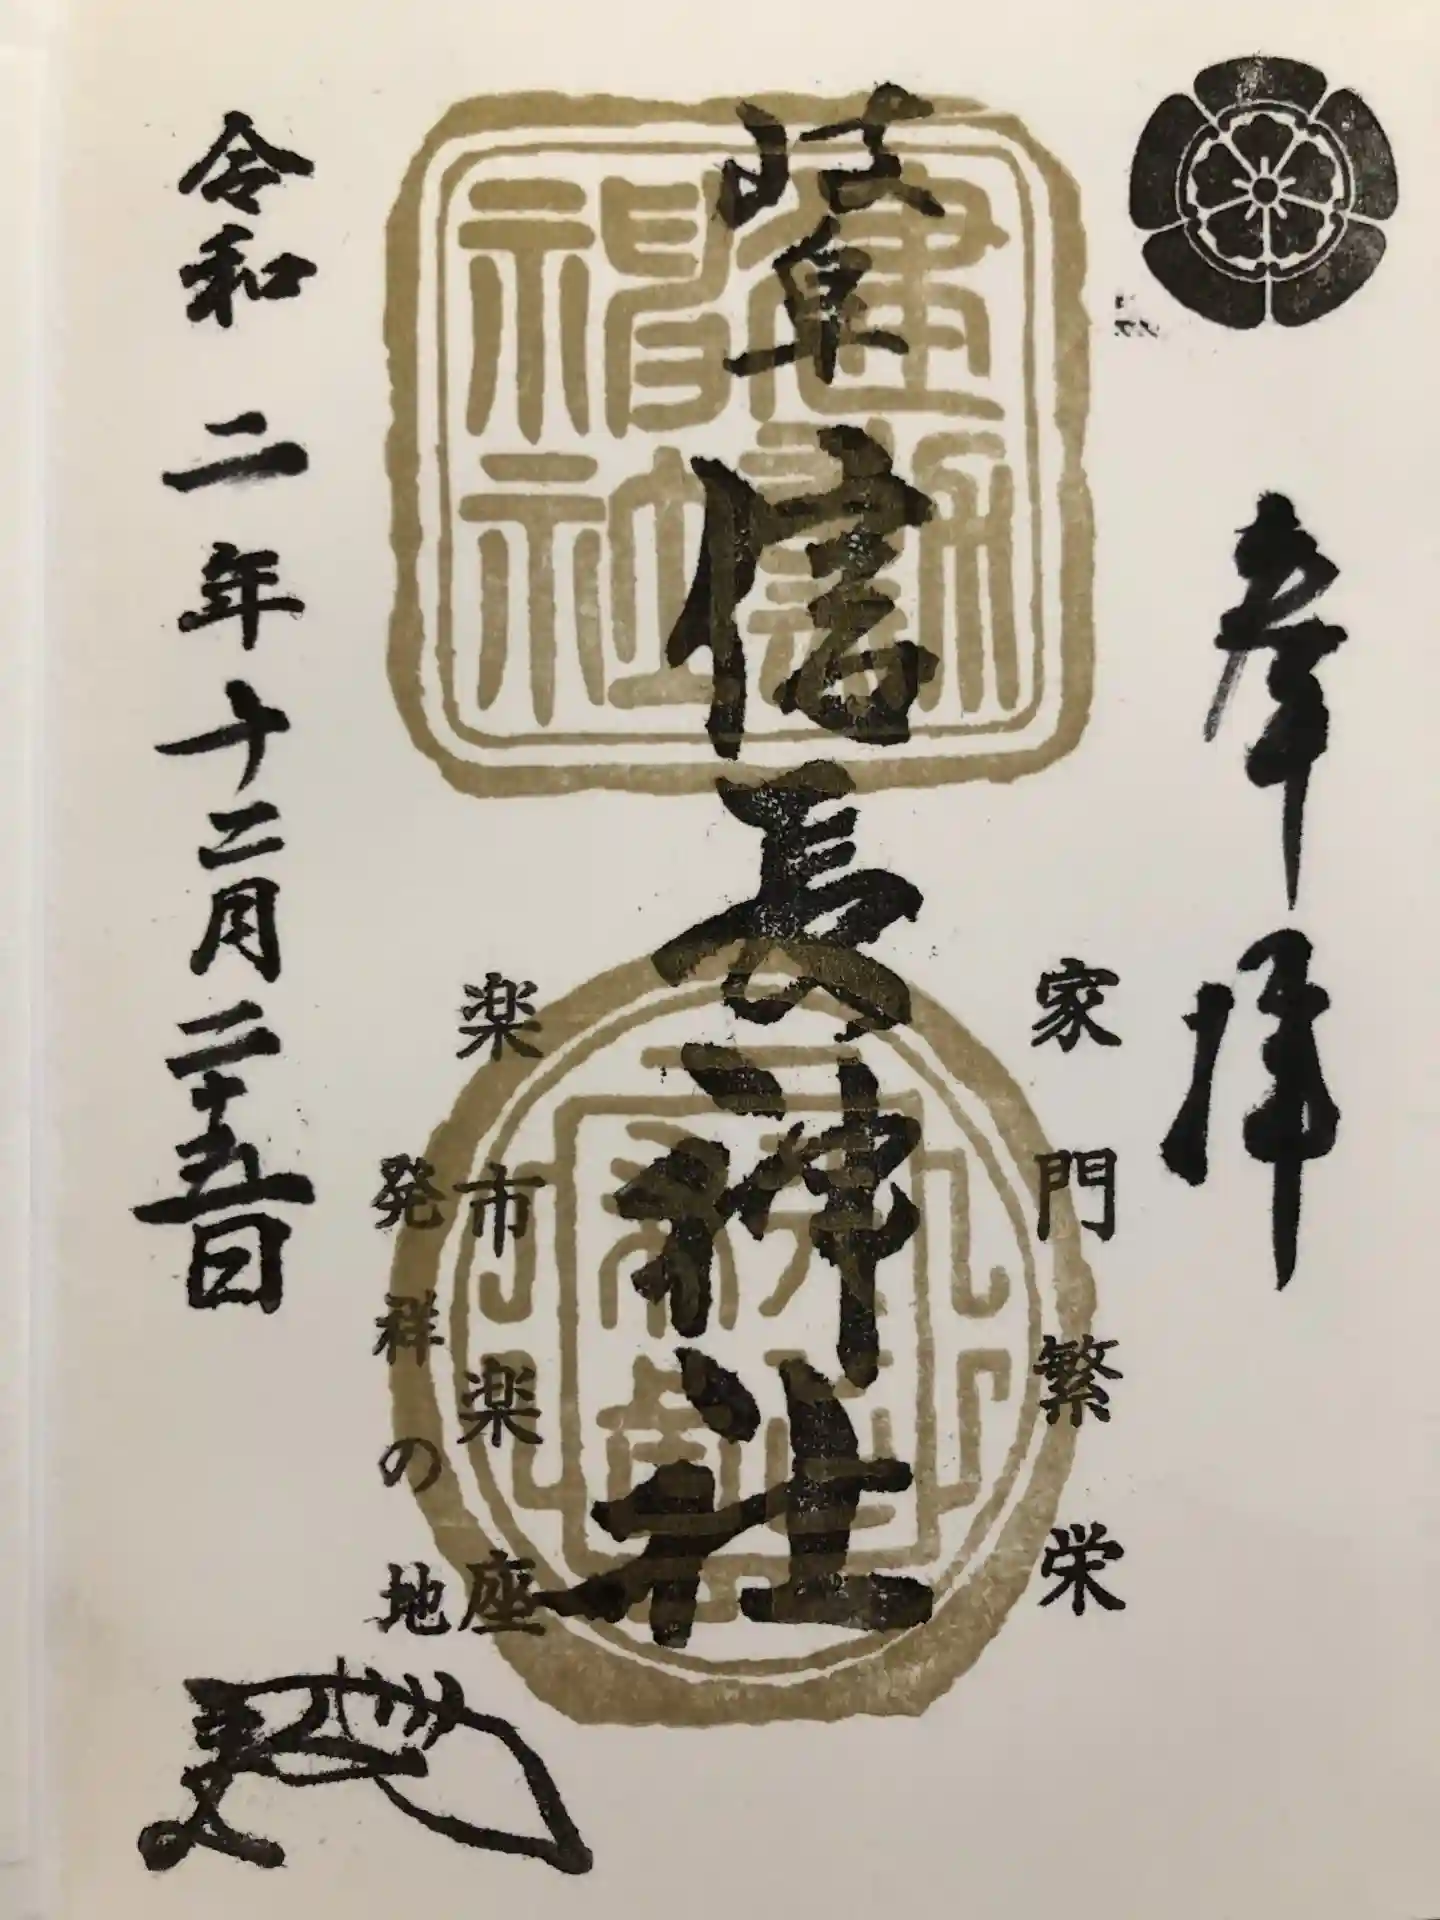 奉拝
家門繁栄
岐阜信長神社
建勲神社
楽市楽座
発祥の地
令和二年十二月二十五日